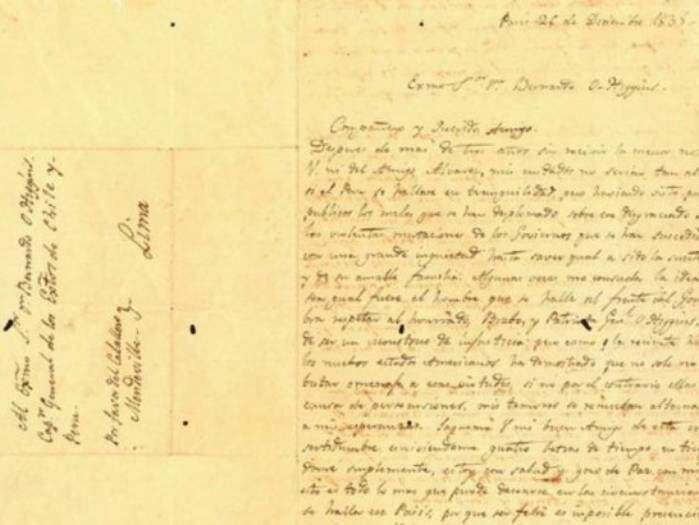 Paris 26 de Diciembre 1836
Exmo Sor Dn Bernardo O-Higgins.
Compañero y Querido Amigo.
Despues de mas de tres años sin recivir la menor no
V. ni del Amigo Alvarez, mis cuidados no serian tan al
si el Peru se hallase en tranquilidad, pero haviendo visto p
publicos los males que se han desplomado sobre ese desgraciado
las violentas mutaciones de los Goviernos que se han sucedi
con una grande inquietud hasta saver qual a sido la suerte
y de su amable familia: Algunas veces me consuela la idea
sea qual fuere, el hombre que se halla al frente del Go
bra respetar al honrrado, Brabo, y Patriota Genl O Higgins
de ser un monstruo de injusticia: pero como la reciente his
los nuebos estados Americanos ha demostrado que no solo no
butar omenage a esas virtudes, si no por el contrario
causa de persecuciones, mis temores se renuevan alterna
a mis esperanzas. Saqueme V mi buen Amigo de esta in
sertidumbre escriviendome quatro letras de tiempo en tie
donme simplemente, estoy con salud y gozo de Paz con mi
esto es todo lo mas que puede desearse en las circunstancias
se halla ese Pais, por que ser feliz es imposible presencia
Al Exmo Sr Dn Bernardo O Higgins.
Capn General de los Extos de Chile y
Peru.
Por favor del Caballero
Mendeville
Lima